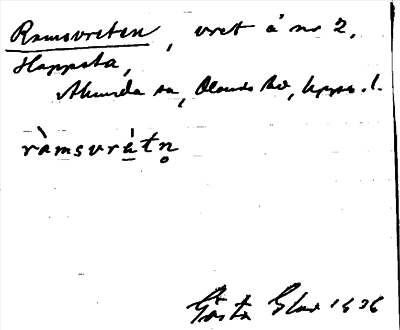 Ramsvreten, vret å nr 2,
Hoppsta,
Almunda sn, Olands hd, Upps. l.
ràmsvrètn̥
Gösta 1936